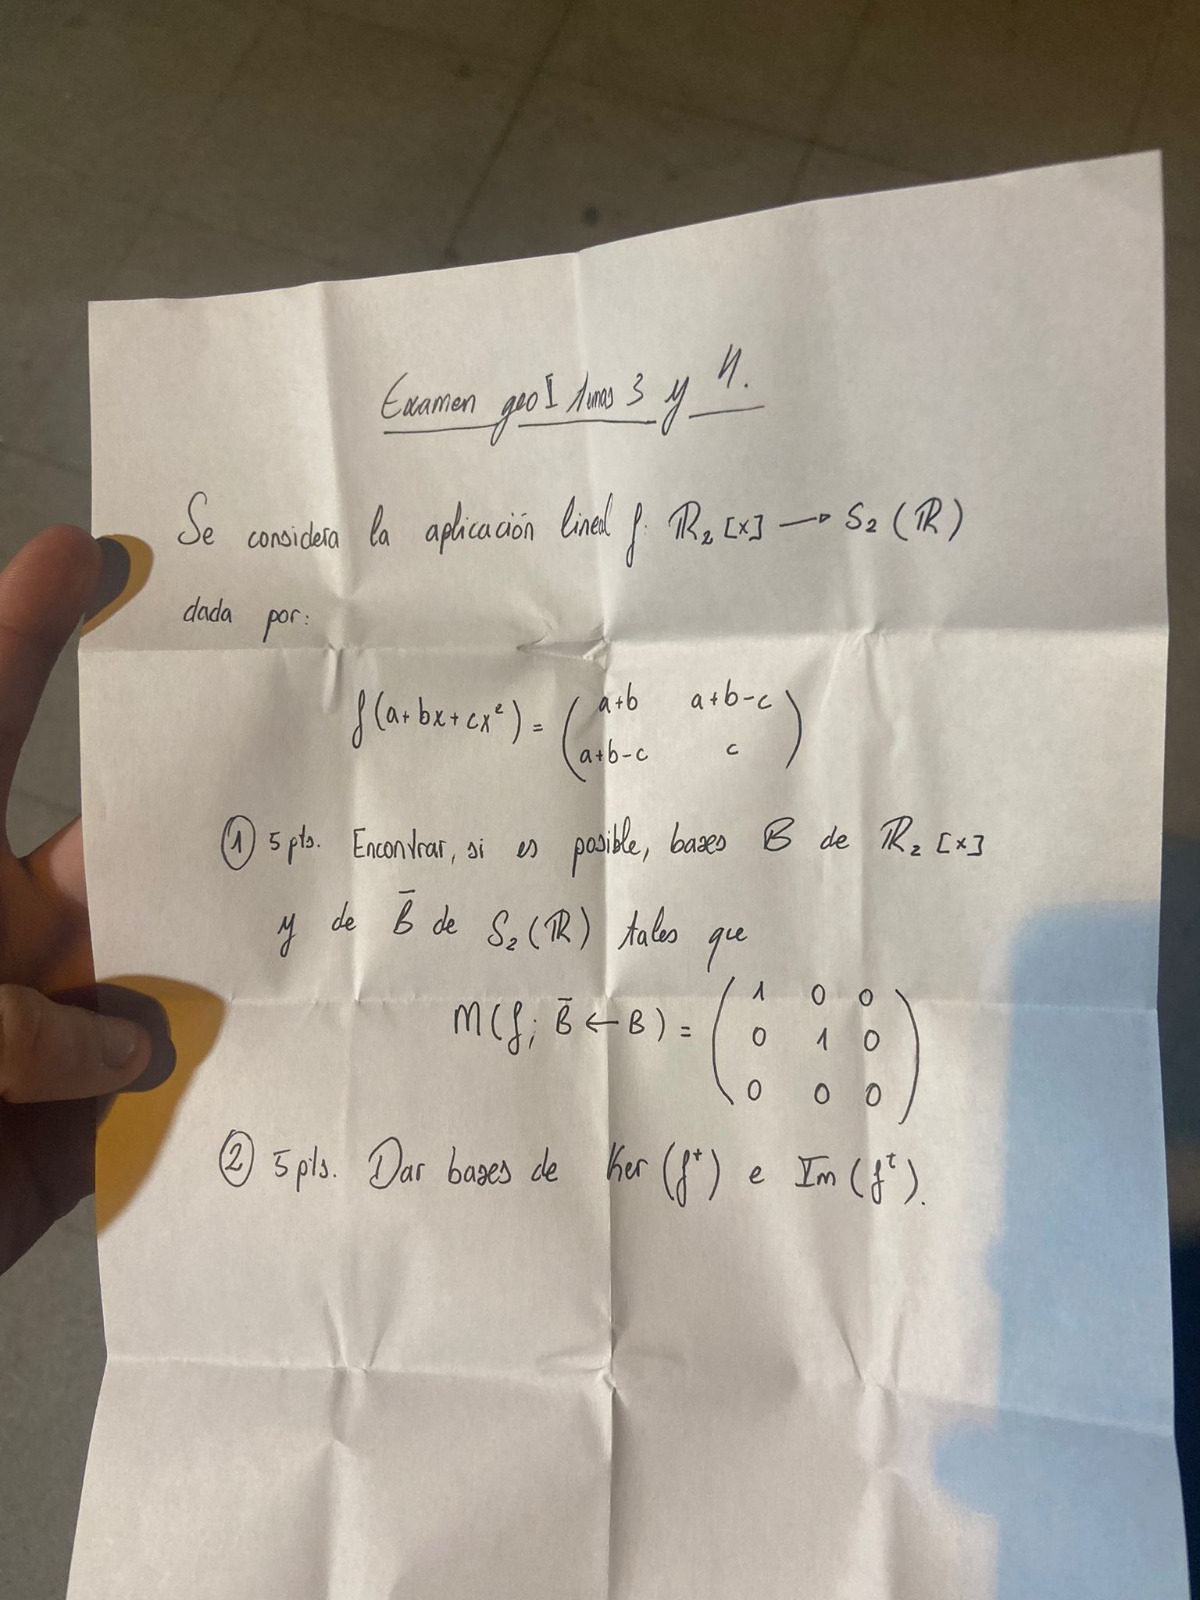 Examen geo I temas 3 y 4.
Se considera la aplicación lineal f: ℝ₂[x] → S₂(ℝ)
dada por:
f(a+bx+cx²) = ( a+b a+b-c
a+b-c c )
① 5 pts. Encontrar, si es posible, bases B de ℝ₂[x]
y de B̄ de S₂(ℝ) tales que
M(f; B̄ ← B) = ( 1 0 0
0 1 0
0 0 0 )
② 5 pts. Dar bases de Ker(fᵗ) e Im(fᵗ).